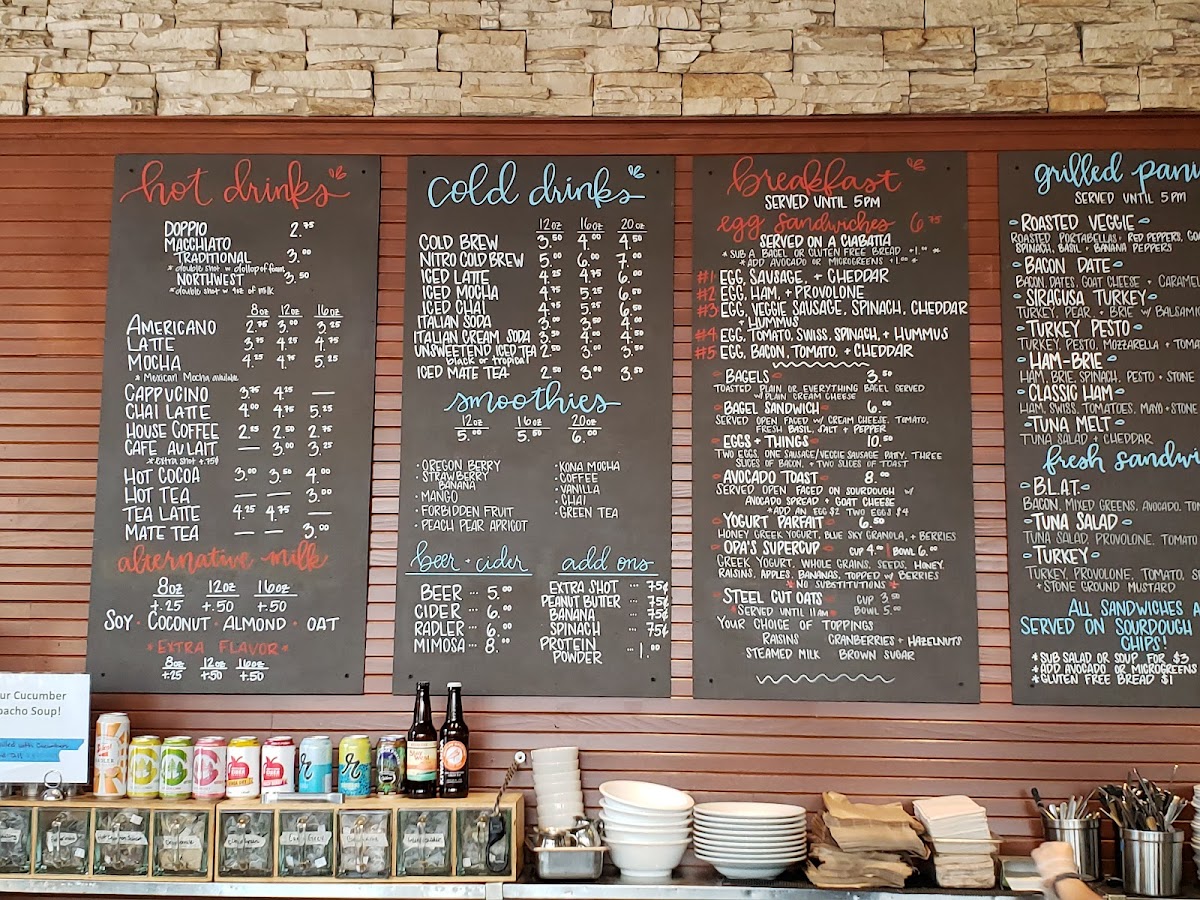 hot drinks
DOPPIO 2.75
MACCHIATO
TRADITIONAL 3.00
*double shot w/ dollop of foam
NORTHWEST 3.50
*double shot w/ 4oz of milk
8oz 12oz 16oz
AMERICANO 2.75 3.00 3.25
LATTE 3.75 4.25 4.75
MOCHA 4.25 4.75 5.25
*Mexican Mocha available
CAPPUCINO 3.75 4.25 —
CHAI LATTE 4.00 4.75 5.25
HOUSE COFFEE 2.25 2.50 2.75
CAFE AU LAIT — 3.00 3.25
*extra shot +.75¢
HOT COCOA 3.00 3.50 4.00
HOT TEA — — 3.00
TEA LATTE 4.25 4.75 —
MATE TEA — 3.00
alternative milk
8oz 12oz 16oz
+.25 +.50 +.50
SOY · COCONUT · ALMOND · OAT
*EXTRA FLAVOR*
8oz 12oz 16oz
+.25 +.50 +.50
cold drinks
12oz 16oz 20oz
COLD BREW 3.50 4.00 4.50
NITRO COLD BREW 5.00 6.00 7.00
ICED LATTE 4.25 4.75 6.00
ICED MOCHA 4.75 5.25 6.50
ICED CHAI 4.75 5.25 6.50
ITALIAN SODA 3.00 3.50 4.00
ITALIAN CREAM SODA 3.50 4.00 4.50
UNSWEETEND ICED TEA 2.50 3.00 3.50
black or tropical
ICED MATE TEA 2.50 3.00 3.50
smoothies
12oz 16oz 20oz
5.00 5.50 6.00
· OREGON BERRY
· STRAWBERRY BANANA
· MANGO
· FORBIDDEN FRUIT
· PEACH PEAR APRICOT
· KONA MOCHA
· COFFEE
· VANILLA
· CHAI
· GREEN TEA
beer + cider
BEER ··· 5.00
CIDER ··· 6.00
RADLER ··· 6.00
MIMOSA ··· 8.00
add ons
EXTRA SHOT ··· 75¢
PEANUT BUTTER ··· 75¢
BANANA ··· 75¢
SPINACH ··· 75¢
PROTEIN
POWDER ··· 1.00
breakfast
SERVED UNTIL 5PM
egg sandwiches 6.75
SERVED ON A CIABATTA
*SUB A BAGEL OR GLUTEN FREE BREAD +1.00
*ADD AVOCADO OR MICROGREENS +1.00
#1 EGG, SAUSAGE, + CHEDDAR
#2 EGG, HAM, + PROVOLONE
#3 EGG, VEGGIE SAUSAGE, SPINACH, CHEDDAR
+ HUMMUS
#4 EGG, TOMATO, SWISS, SPINACH, + HUMMUS
#5 EGG, BACON, TOMATO, + CHEDDAR
BAGELS 3.50
TOASTED PLAIN OR EVERYTHING BAGEL SERVED
w/ PLAIN CREAM CHEESE
BAGEL SANDWICH 6.00
SERVED OPEN FACED w/ CREAM CHEESE, TOMATO,
FRESH BASIL, SALT + PEPPER
EGGS + THINGS 10.50
TWO EGGS, ONE SAUSAGE/VEGGIE SAUSAGE PATTY, THREE
SLICES OF BACON, + TWO SLICES OF TOAST
AVOCADO TOAST 8.00
SERVED OPEN FACED ON SOURDOUGH w/
AVOCADO SPREAD + GOAT CHEESE
*ADD AN EGG $2 TWO EGGS $4
YOGURT PARFAIT 6.50
HONEY GREEK YOGURT, BLUE SKY GRANOLA, + BERRIES
OPA'S SUPERCUP CUP 4.00 | BOWL 6.00
GREEK YOGURT, WHOLE GRAINS, SEEDS, HONEY,
RAISINS, APPLES, BANANAS, TOPPED w/ BERRIES
*NO SUBSTITUTIONS*
STEEL CUT OATS CUP 3.50
*SERVED UNTIL 11AM* BOWL 5.00
YOUR CHOICE OF TOPPINGS
RAISINS CRANBERRIES + HAZELNUTS
STEAMED MILK BROWN SUGAR
grilled pani
SERVED UNTIL 5PM
ROASTED VEGGIE
ROASTED PORTABELLAS, RED PEPPERS, GOA
SPINACH, BASIL + BANANA PEPPERS
BACON DATE
BACON, DATES, GOAT CHEESE + CARAMEL
SIRAGUSA TURKEY
TURKEY, PEAR, + BRIE w/ BALSAMIC
TURKEY PESTO
TURKEY, PESTO, MOZZARELLA + TOMA
HAM-BRIE
HAM, BRIE, SPINACH, PESTO + STONE
CLASSIC HAM
HAM, SWISS, TOMATOES, MAYO + STONE
TUNA MELT
TUNA SALAD + CHEDDAR
fresh sandwi
B.L.A.T.
BACON, MIXED GREENS, AVOCADO, TOM
TUNA SALAD
TUNA SALAD, PROVOLONE, TOMATO
TURKEY
TURKEY, PROVOLONE, TOMATO, S
+ STONE GROUND MUSTARD
ALL SANDWICHES A
SERVED ON SOURDOUGH
CHIPS!
*SUB SALAD OR SOUP FOR $3
*ADD AVOCADO OR MICROGREENS
*GLUTEN FREE BREAD $1
ur Cucumber
pacho Soup!